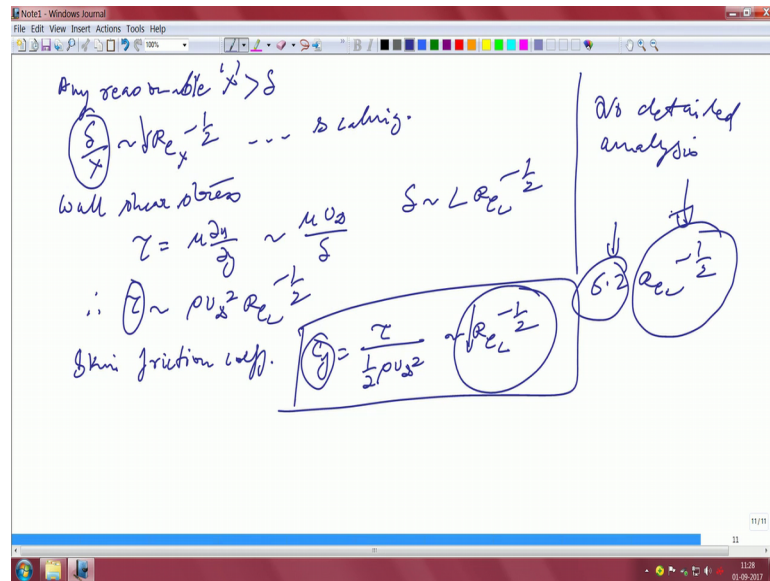 Note1 - Windows Journal
File Edit View Insert Actions Tools Help
100%
B I
Any reasonable 'x' > δ
δ/x ~ Re_x^{-1/2} --- scaling.
Wall shear stress
δ ~ L Re_L^{-1/2}
τ = μ ∂u/∂y ~ μ U∞/δ
∴ τ ~ ρU∞² Re_L^{-1/2}
Skin friction coeff.
C_f = τ / ½ρU∞² ~ Re_L^{-1/2}
No detailed
analysis
6.2 Re_L^{-1/2}
11/11
11
11:28
01-09-2017